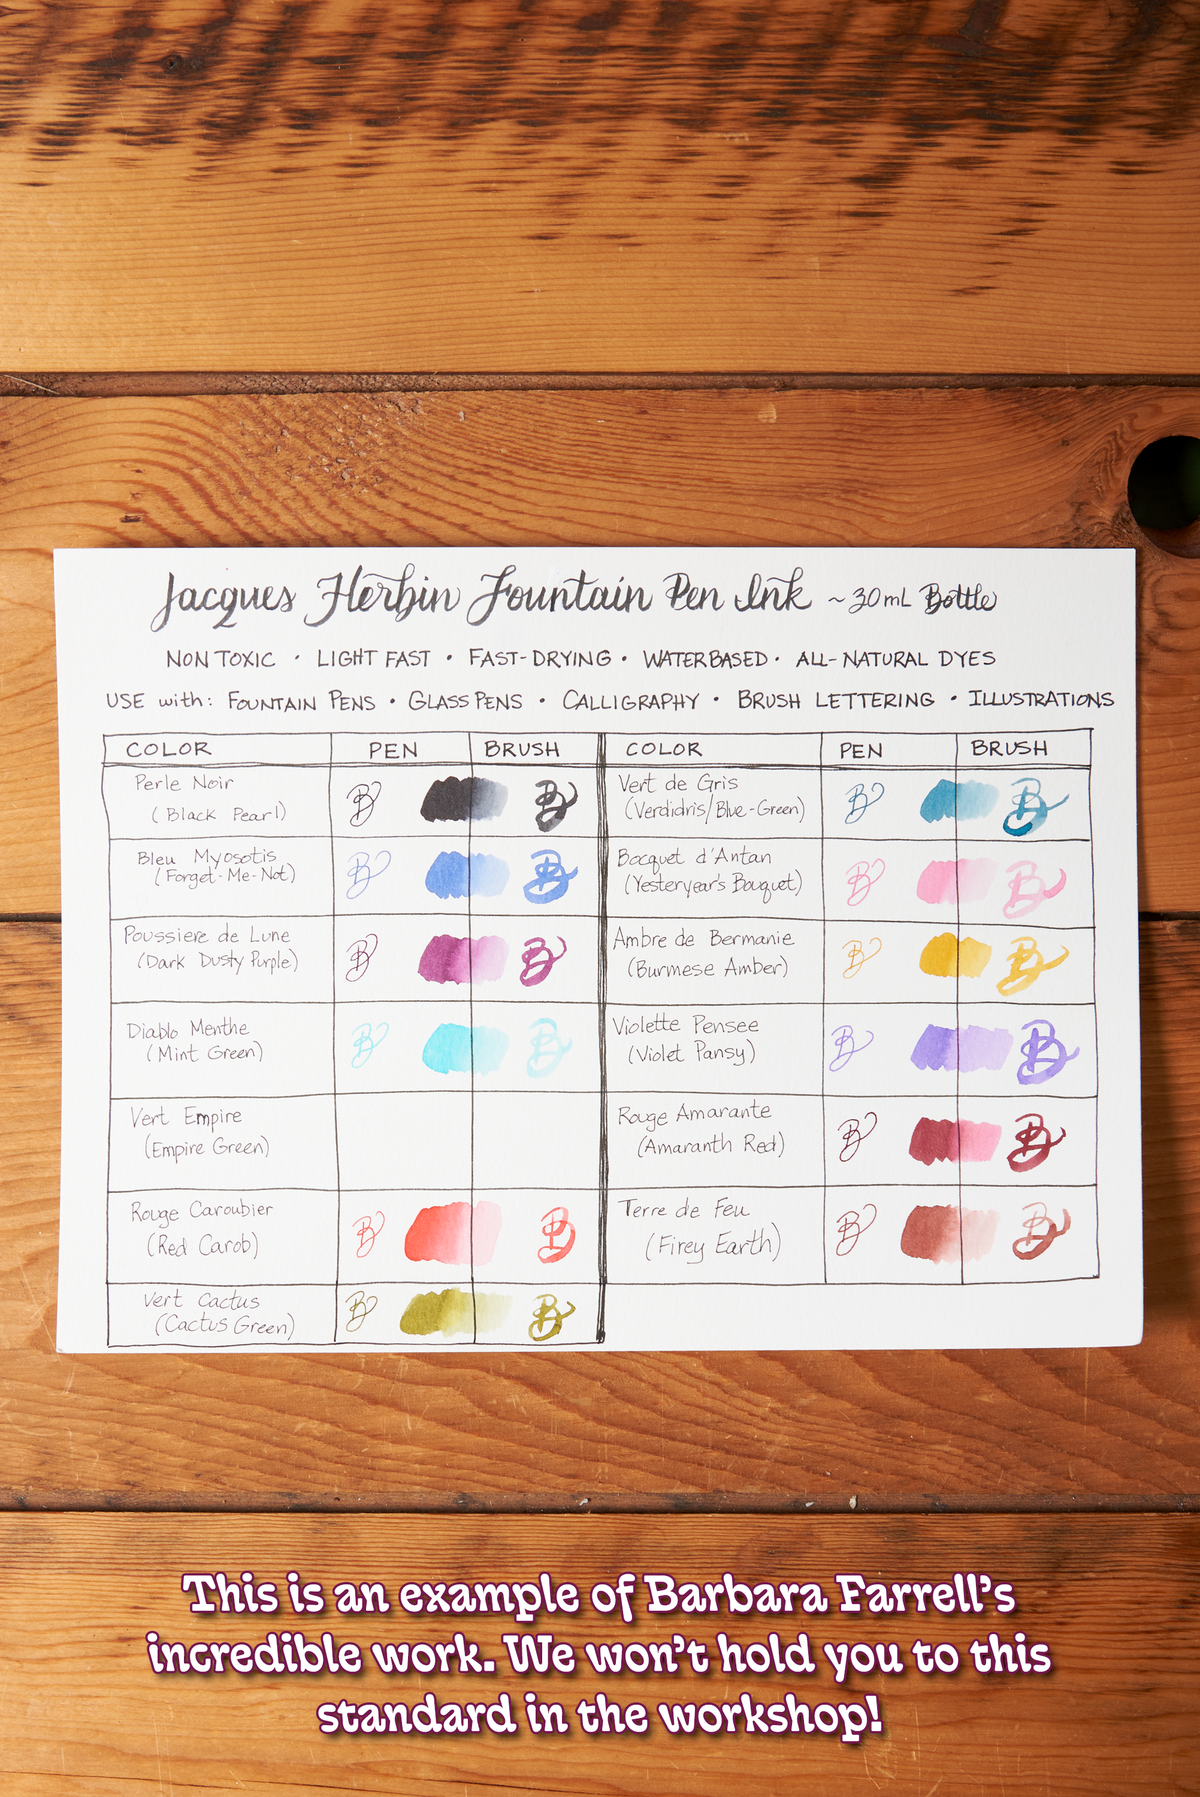 Jacques Herbin Fountain Pen Ink ~ 30mL Bottle
NON TOXIC · LIGHT FAST · FAST-DRYING · WATERBASED · ALL-NATURAL DYES
USE with: FOUNTAIN PENS · GLASS PENS · CALLIGRAPHY · BRUSH LETTERING · ILLUSTRATIONS
COLOR PEN BRUSH COLOR PEN BRUSH
Perle Noir
(Black Pearl) B B
Bleu Myosotis
(Forget-Me-Not) B B
Poussiere de Lune
(Dark Dusty Purple) B B
Diablo Menthe
(Mint Green) B B
Vert Empire
(Empire Green)
Rouge Caroubier
(Red Carob) B B
Vert Cactus
(Cactus Green) B B
Vert de Gris
(Verdidris/Blue-Green) B B
Bocquet d'Antan
(Yesteryear's Bouquet) B B
Ambre de Bermanie
(Burmese Amber) B B
Violette Pensee
(Violet Pansy) B B
Rouge Amarante
(Amaranth Red) B B
Terre de Feu
(Firey Earth) B B
This is an example of Barbara Farrell's
incredible work. We won't hold you to this
standard in the workshop!